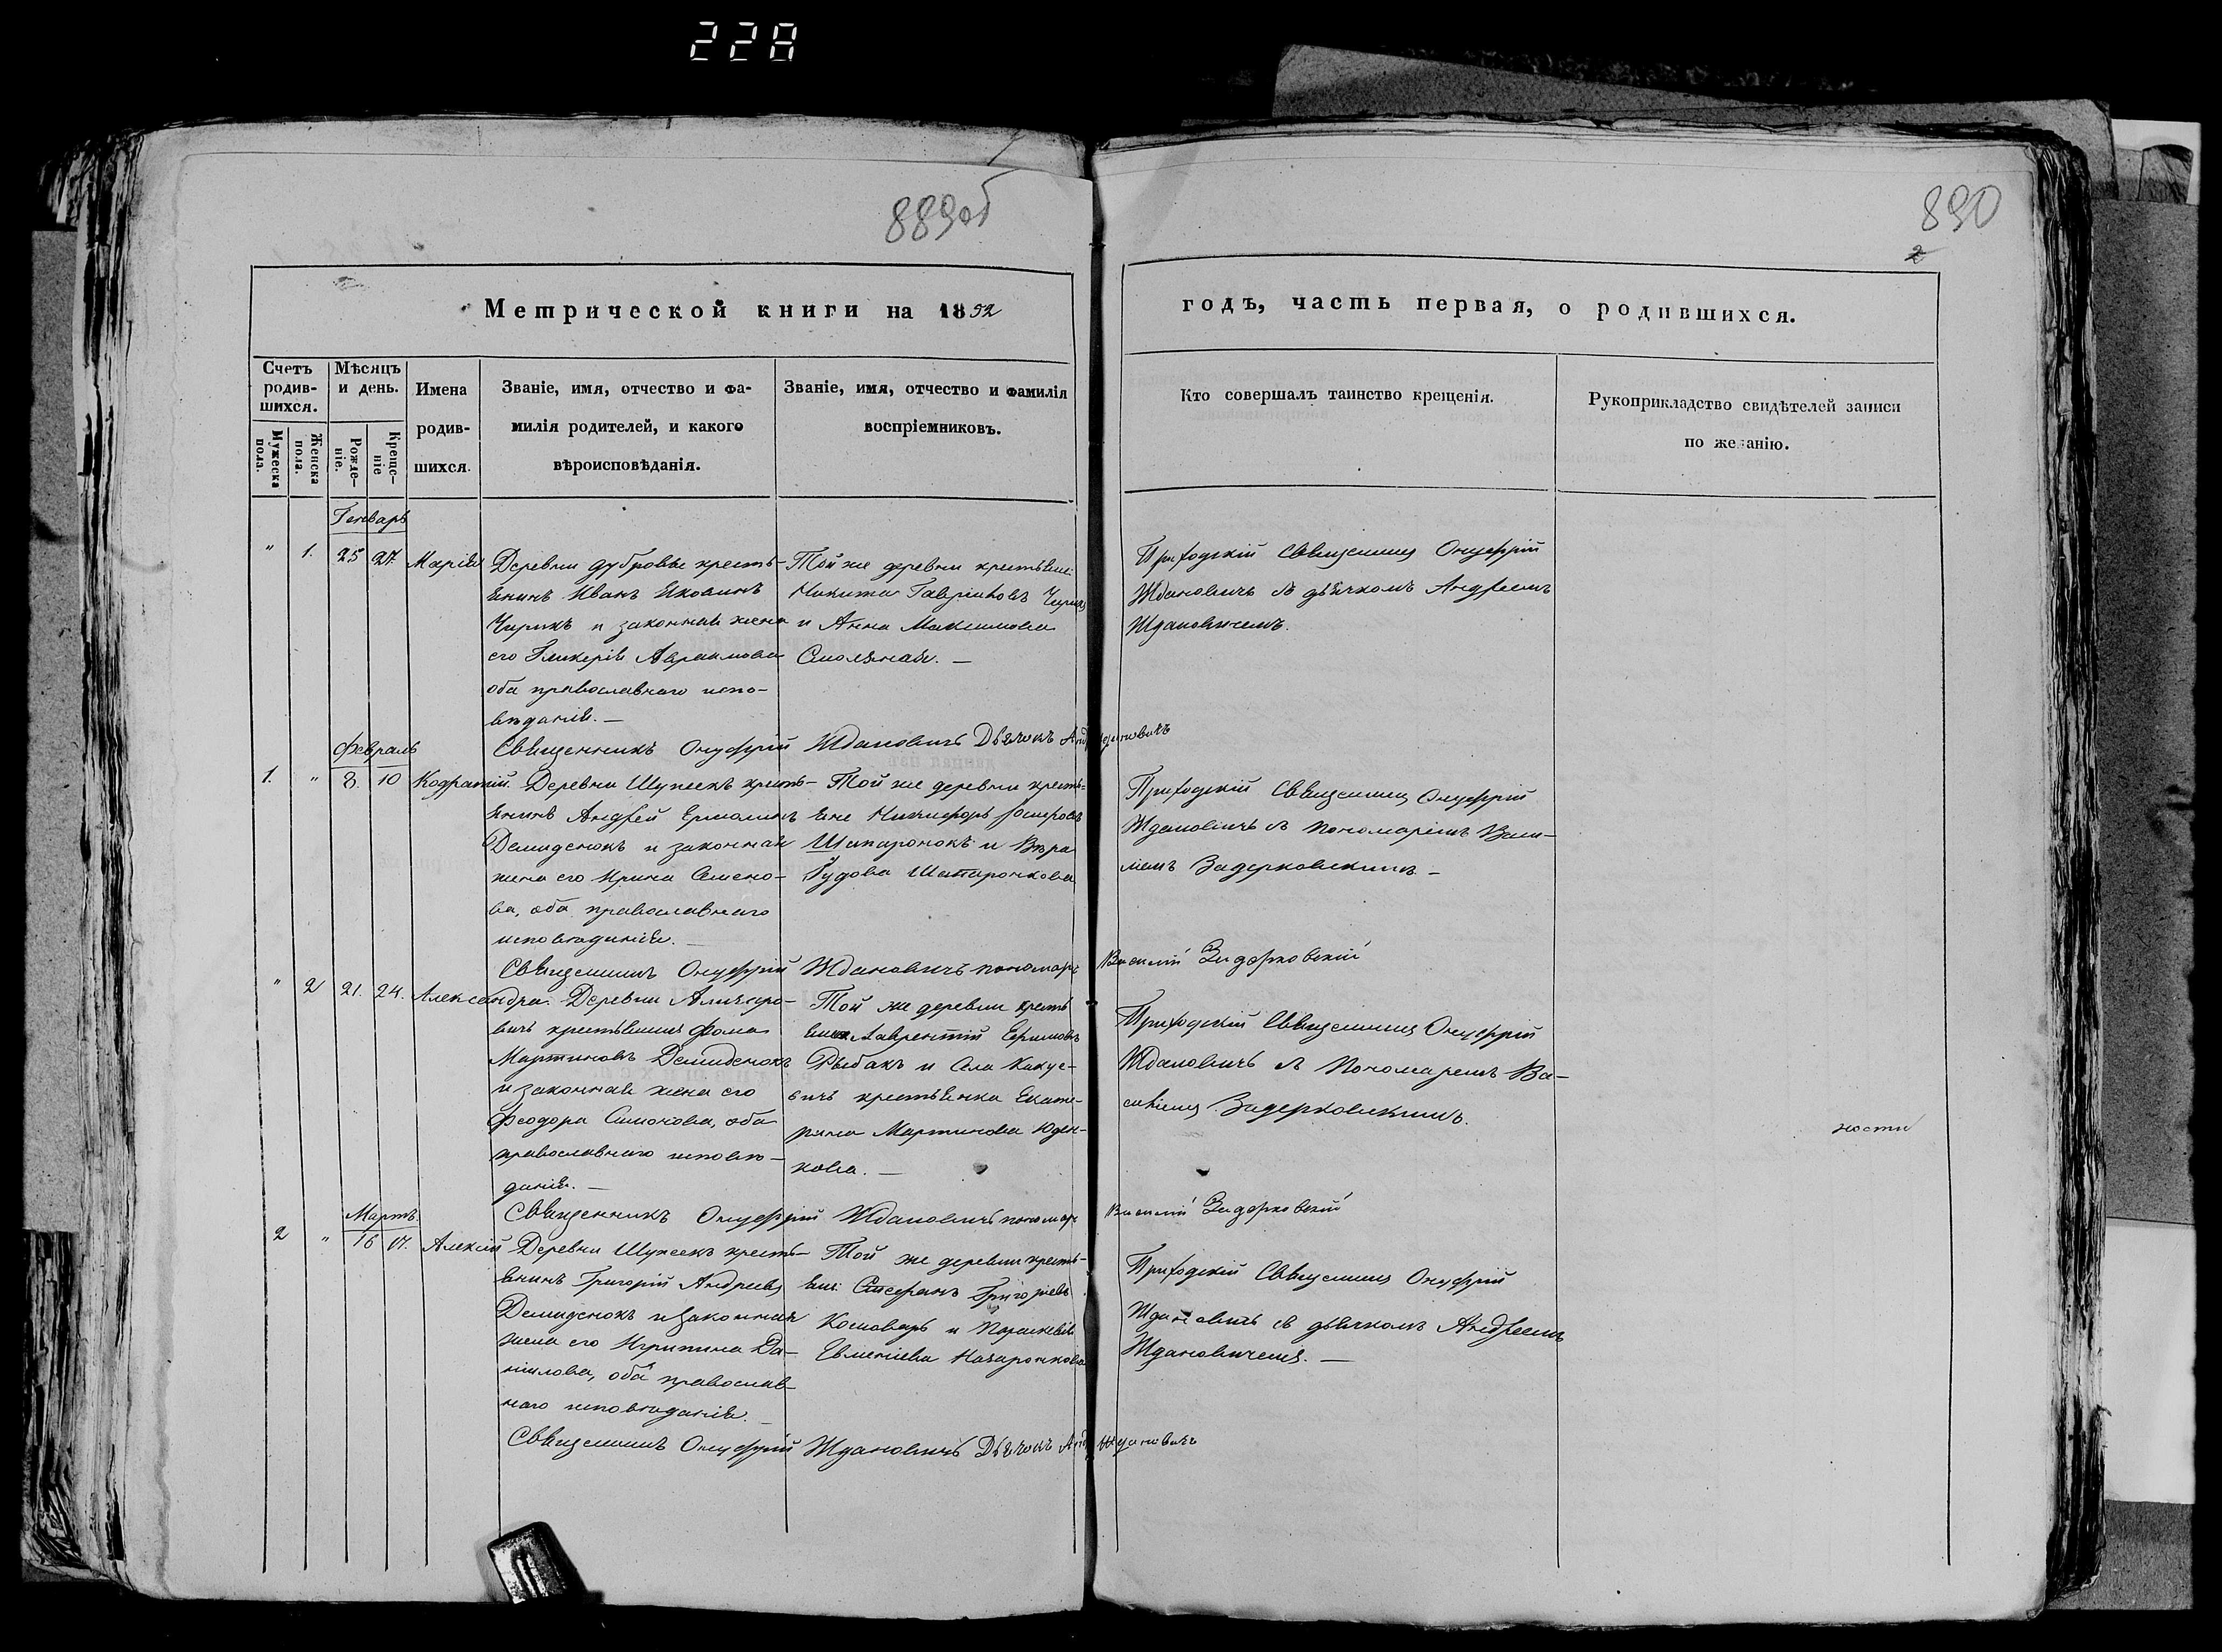 228
889об
890
2
Метрической книги на 1852
годъ, часть первая, о родившихся.
Счетъ родив-шихся.
Мужеска пола.
Женска пола.
Мѣсяцъ и день.
Рожде-ніе.
Креще-ніе
Имена родив-шихся.
Званіе, имя, отчество и фа-
милія родителей, и какого
вѣроисповѣданія.
Званіе, имя, отчество и фамилія
воспріемниковъ.
Кто совершалъ таинство крещенія.
Рукоприкладство свидѣтелей записи
по желанію.
Генварь
" 1. 25 27. Марія
Деревни Дубровы кресть-
янинъ Иванъ Яковинъ
Чирикъ и законная жена
его Гликерія Авраамова
оба православнаго испо-
вѣданія. —
Той же деревни крестьяне:
Никита Гавриловъ
и Анна Максимова
Смоляная. —
Приходскій Священникъ Онуфрій
Ждановичъ съ дьячкомъ Андреемъ
Ждановичемъ.
Священникъ Онуфрій Ждановичъ Дьячокъ Ждановичъ
Февраль
1. " 8. 10 Кодратій.
Деревни Шупеекъ кресть-
янинъ Андрей Ермолинъ
Демиденокъ и законная
жена его Ирина Семено-
ва, оба православнаго
исповѣданія. —
Той же деревни кресть-
яне Никифоръ
Шапаронокъ и Вѣра
Гудова Шапаронкова
Приходскій Священникъ Онуфрій
Ждановичъ съ Пономаремъ Васи-
ліемъ Задерковскимъ —
Священникъ Онуфрій Ждановичъ пономарь Василій Задерковскій
" 2 21. 24. Александра.
Деревни
вичъ крестьянинъ Фома
Мартиновъ Демиденокъ
и законная жена его
Феодора Симонова, оба
православнаго исповѣ-
данія. —
Той же деревни кресть
Лаврентій Ефимовъ
Рыбакъ и Села
вичъ крестьянка Екате-
рина Мартинова Юден-
кова. —
Приходскій Священникъ Онуфрій
Ждановичъ съ Пономаремъ Ва-
силіемъ Задерковскимъ.
ности
Священникъ Онуфрій Ждановичъ пономарь Василій Задерковскій
Мартъ.
2 " 16 17. Алексій
Деревни Шупеекъ кресть-
янинъ Григорій Андреевъ
Демиденокъ и законная
жена его Игрипина Да-
ніилова, оба православ-
наго исповѣданія. —
Той же деревни кресть-
яне: Стефанъ Григорьевъ
Коноваръ и Параскевія
Евменіева Назаронкова
Приходскій Священникъ Онуфрій
Ждановичъ съ дьячкомъ Андреемъ
Ждановичемъ. —
Священникъ Онуфрій Ждановичъ Дьячокъ Ждановичъ